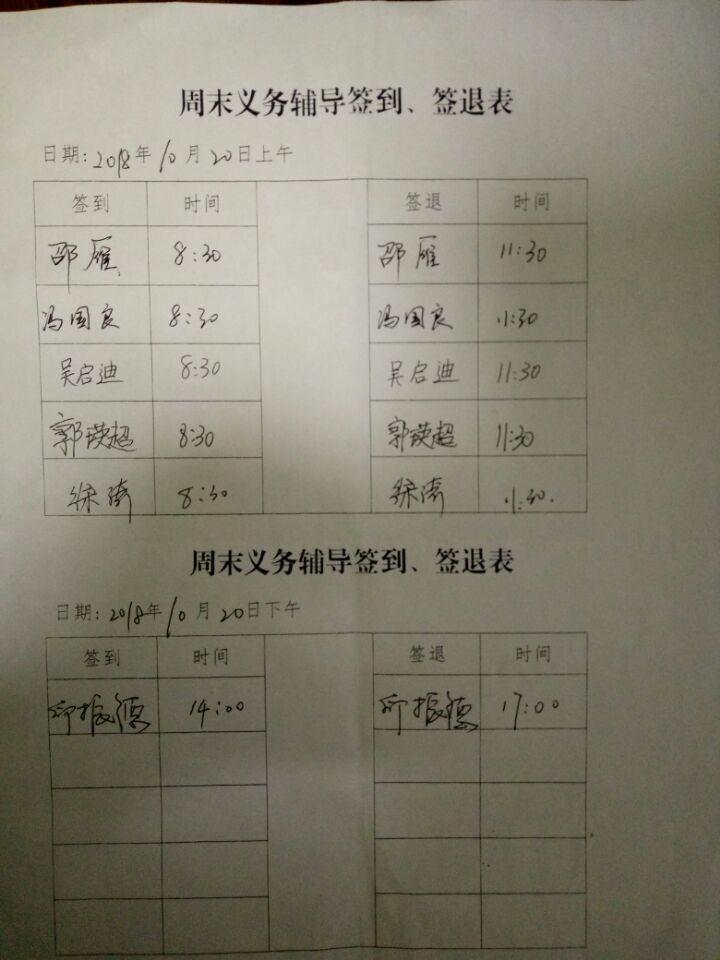 周末义务辅导签到、签退表
日期: 2018年10月20日上午
签到 时间 签退 时间
邵雁 8:30 邵雁 11:30
冯国良 8:30 冯国良 11:30
吴启迪 8:30 吴启迪 11:30
郭瑛超 8:30 郭瑛超 11:30
徐涛 8:30 徐涛 11:30.
周末义务辅导签到、签退表
日期: 2018年10月20日下午
签到 时间 签退 时间
振德 14:00 振德 17:00